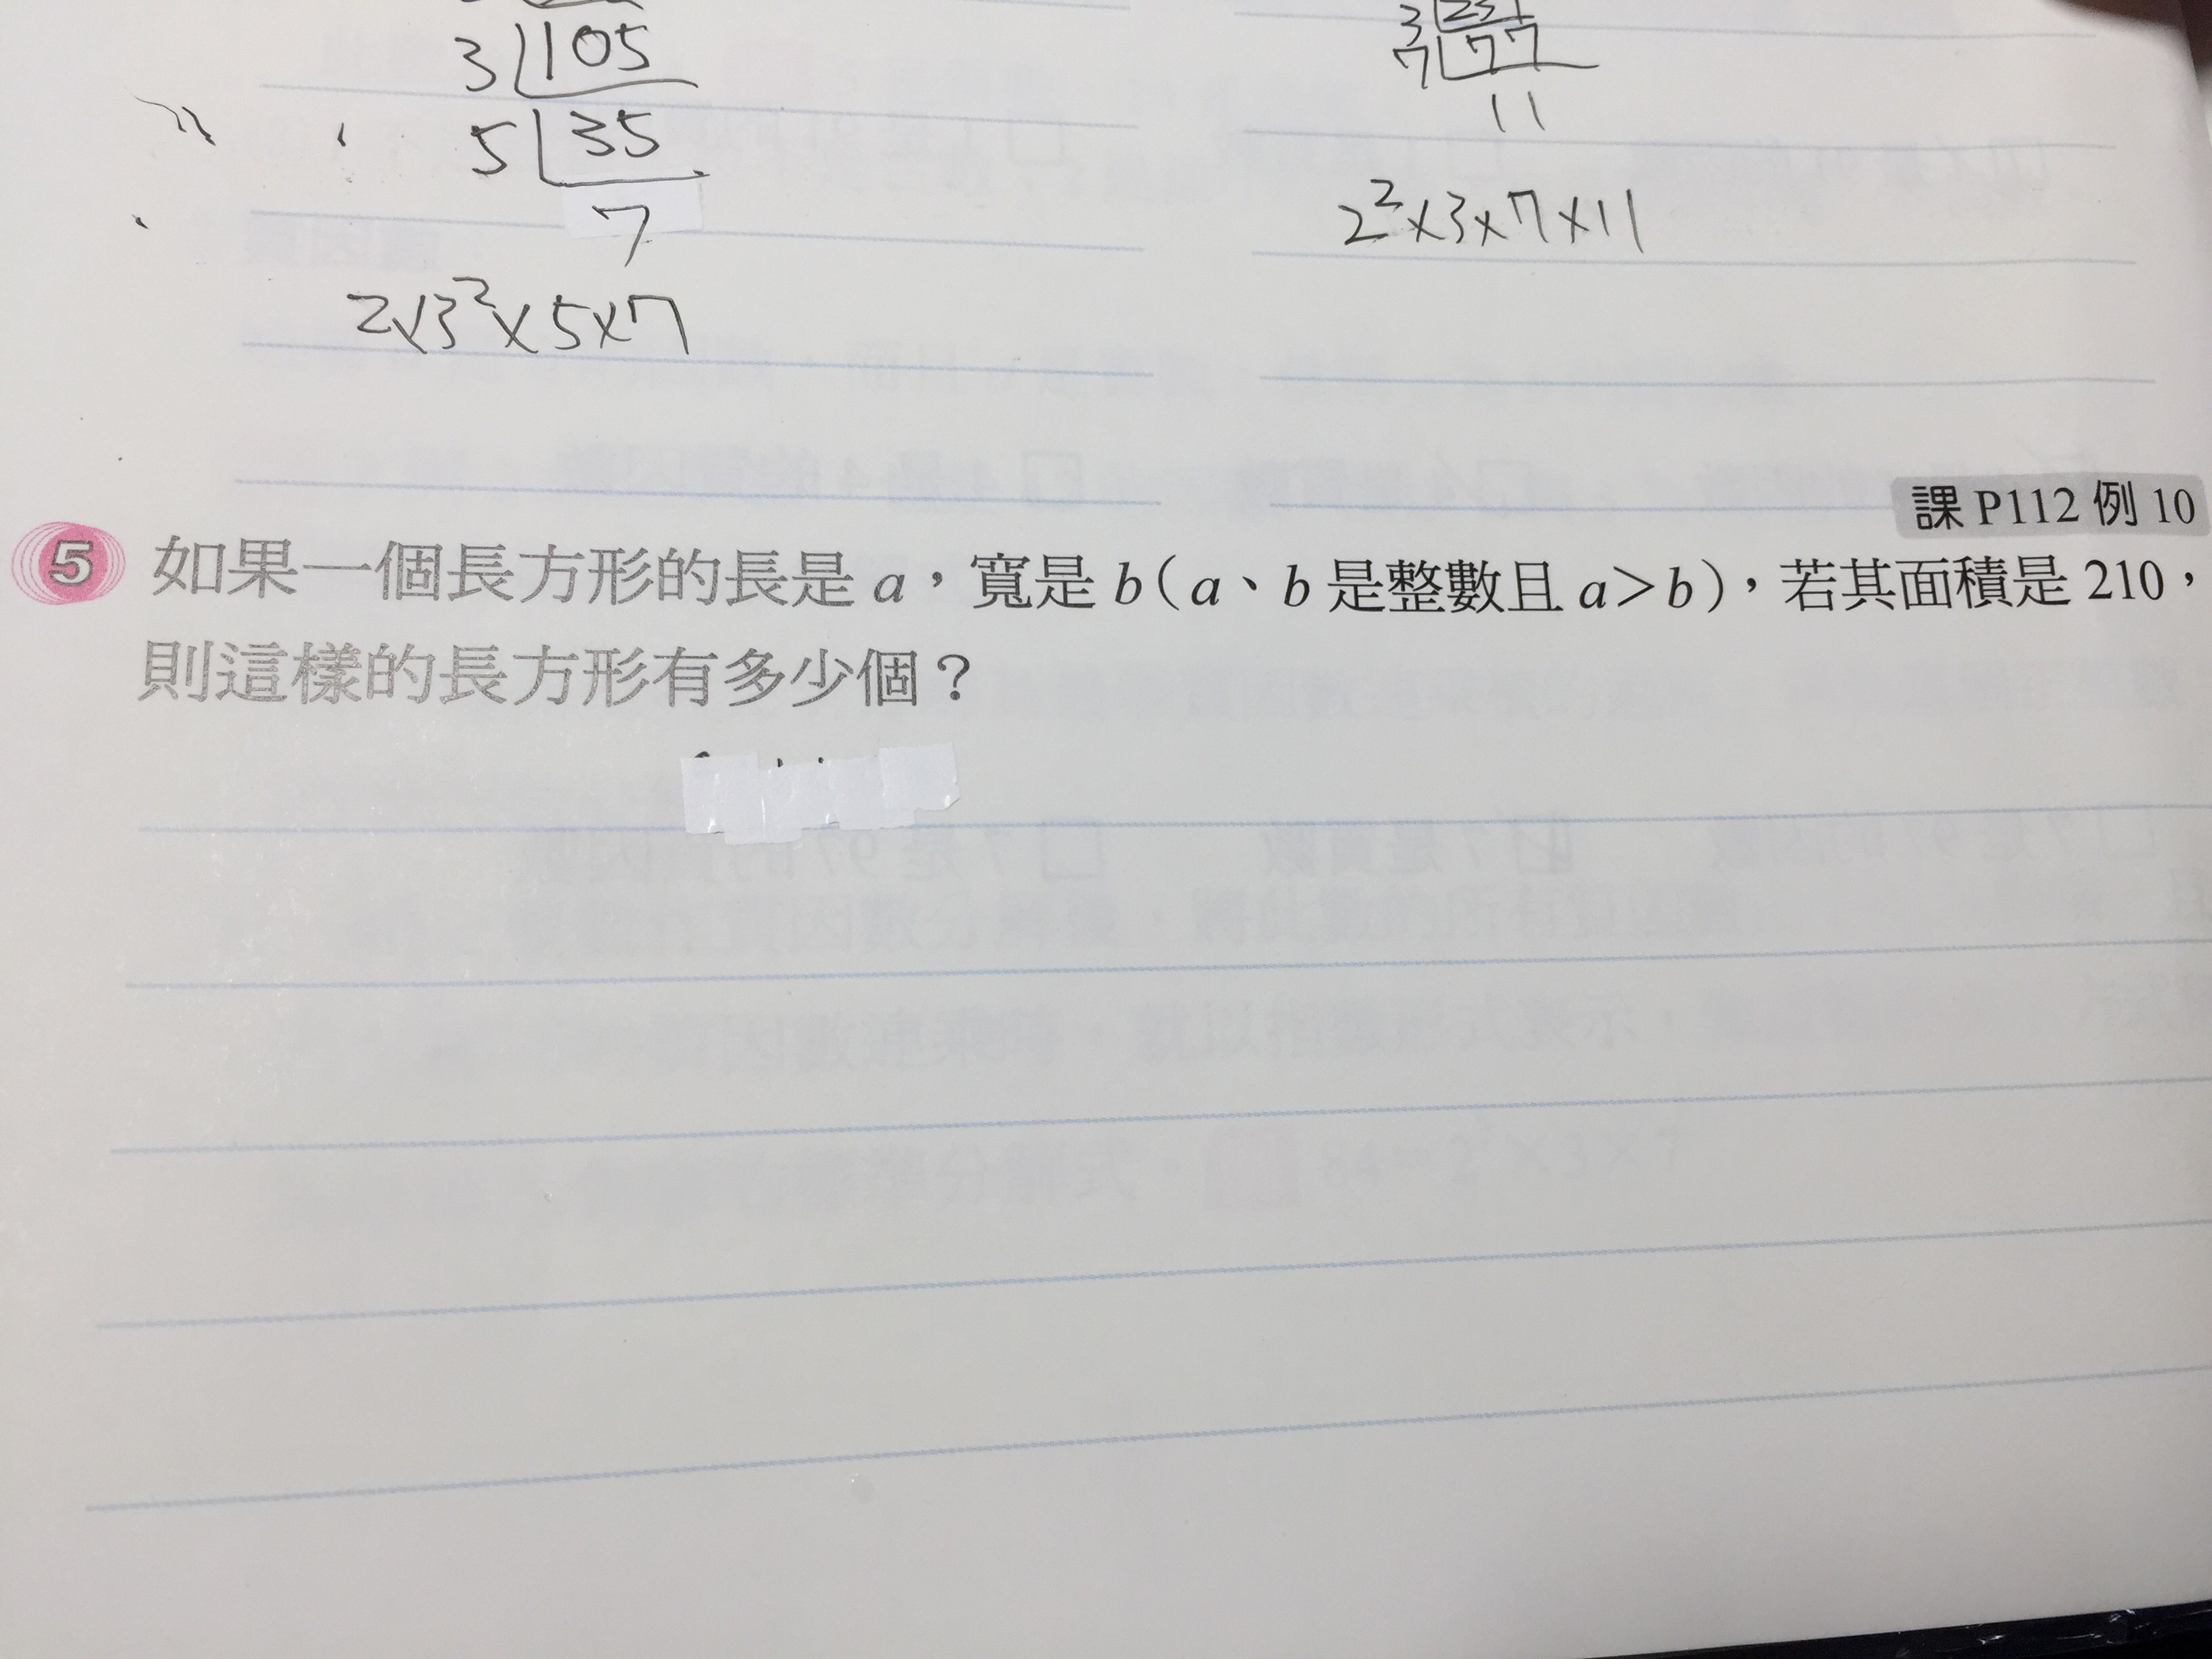 3 105
5 35
7
2×3²×5×7
3 231
7 77
11
2²×3×7×11
課 P112 例 10
5 如果一個長方形的長是 a，寬是 b（a、b 是整數且 a＞b），若其面積是 210，
則這樣的長方形有多少個？